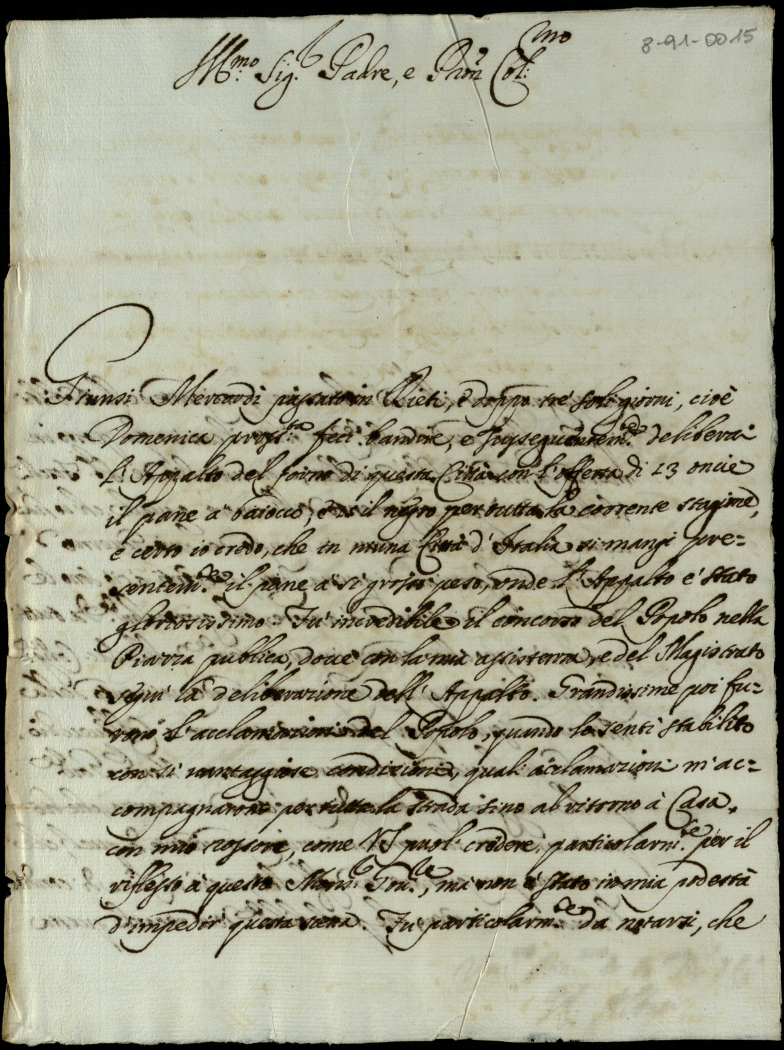 8-91-0015
Ill.mo Sig.r Padre, e Pron Col.mo
Giunsi Mercordì passato in Rieti, e doppo trè soli giorni, cioè
Domenica pross.a feci bandire, e susseguentem.te deliberai
l'Appalto del forno di questa Città con l'offerta di 23 oncie
il pane à baiocco, è il negro per tutta la corrente stagione,
e certo io credo, che in niuna Città d'Italia si mangi pre=
sentem.te il pane à sì grosso peso, onde l'Appalto è stato
gloriosissimo. Fù incredibile il concorso del Popolo nella
Piazza publica, doue con la mia assistenza, e del Magistrato
seguì la deliberazione dell'Appalto. Grandissime poi fu=
rono l'acclamazioni del Popolo, quando lo sentì stabilito
con sì vantaggiose condizioni, quali acclamazioni m'ac=
compagnarono per tutta la strada sino al ritorno à Casa,
con mio rossore, come VS puol credere, particolarm.te per il
riflesso à questo Mons.r Gou.re, mà non è stato in mia podestà
d'impedir questa scena. Fù particolarm.te da notarsi, che